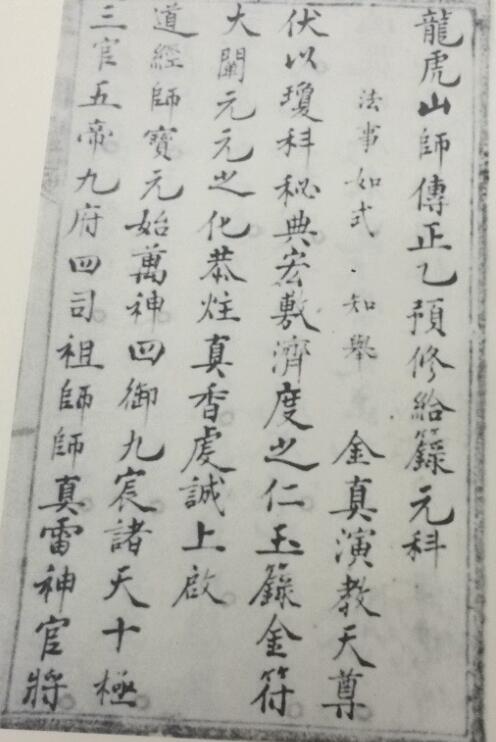 龍虎山師傳正乙預修給籙元科
法事如式．知舉　金真演教天尊
伏以瓊科秘典宏敷濟度之仁玉籙金符
大闡元元之化恭炷真香虔誠上啟
道經師寶元始萬神四御九宸諸天十極
三官五帝九府四司祖師師真雷神官將